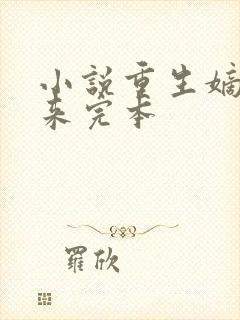 小说重生嫡
来完本
羅欣